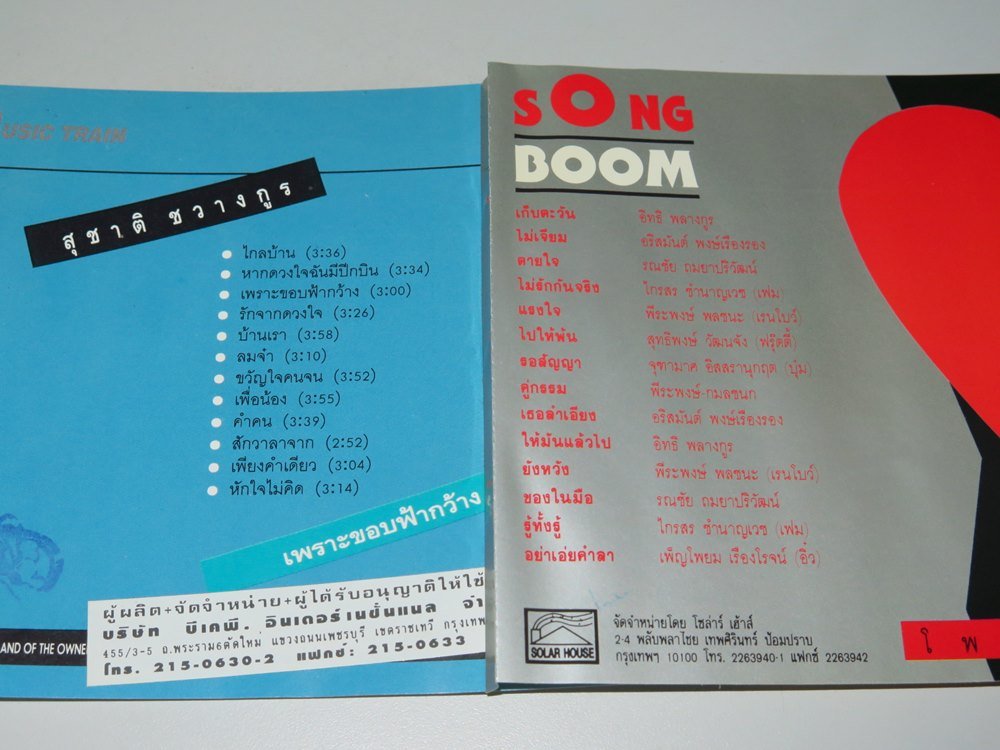 MUSIC TRAIN
สุชาติ ชวางกูร
ไกลบ้าน (3:36)
หากดวงใจฉันมีปีกบิน (3:34)
เพราะขอบฟ้ากว้าง (3:00)
รักจากดวงใจ (3:26)
บ้านเรา (3:58)
ลมจ๋า (3:10)
ขวัญใจคนจน (3:52)
เพื่อน้อง (3:55)
คำคน (3:39)
สักวาลาจาก (2:52)
เพียงคำเดียว (3:04)
หักใจไม่คิด (3:14)
เพราะขอบฟ้ากว้าง
ผู้ผลิต+จัดจำหน่าย+ผู้ได้รับอนุญาติให้ใช้
บริษัท บีเคพี. อินเตอร์เนชั่นแนล จำ
455/3-5 ถ.พระราม6ตัดใหม่ แขวงถนนเพชรบุรี เขตราชเทวี กรุงเทพ
โทร. 215-0630-2 แฟกซ์: 215-0633
AND OF THE OWNE
SONG
BOOM
เก็บตะวัน อิทธิ พลางกูร
ไม่เจียม อริสมันต์ พงษ์เรืองรอง
ตายใจ รณชัย ถมยาปริวัฒน์
ไม่รักกันจริง ไกรสร ชำนาญเวช (เฟม)
แรงใจ พีระพงษ์ พลชนะ (เรนโบว์)
ไปให้พ้น สุทธิพงษ์ วัฒนจัง (ฟรุ๊ตตี้)
รอสัญญา จุฑามาศ อิสสรานุกฤต (บุ๋ม)
คู่กรรม พีระพงษ์-กมลชนก
เธอลำเอียง อริสมันต์ พงษ์เรืองรอง
ให้มันแล้วไป อิทธิ พลางกูร
ยังหวัง พีระพงษ์ พลชนะ (เรนโบว์)
ของในมือ รณชัย ถมยาปริวัฒน์
รู้ทั้งรู้ ไกรสร ชำนาญเวช (เฟม)
อย่าเอ่ยคำลา เพ็ญโพยม เรืองโรจน์ (อิ๋ว)
SOLAR HOUSE
จัดจำหน่ายโดย โซล่าร์ เฮ้าส์
2-4 พลับพลาไชย เทพศิรินทร์ ป้อมปราบ
กรุงเทพฯ 10100 โทร. 2263940-1 แฟกซ์ 2263942
ใ พ